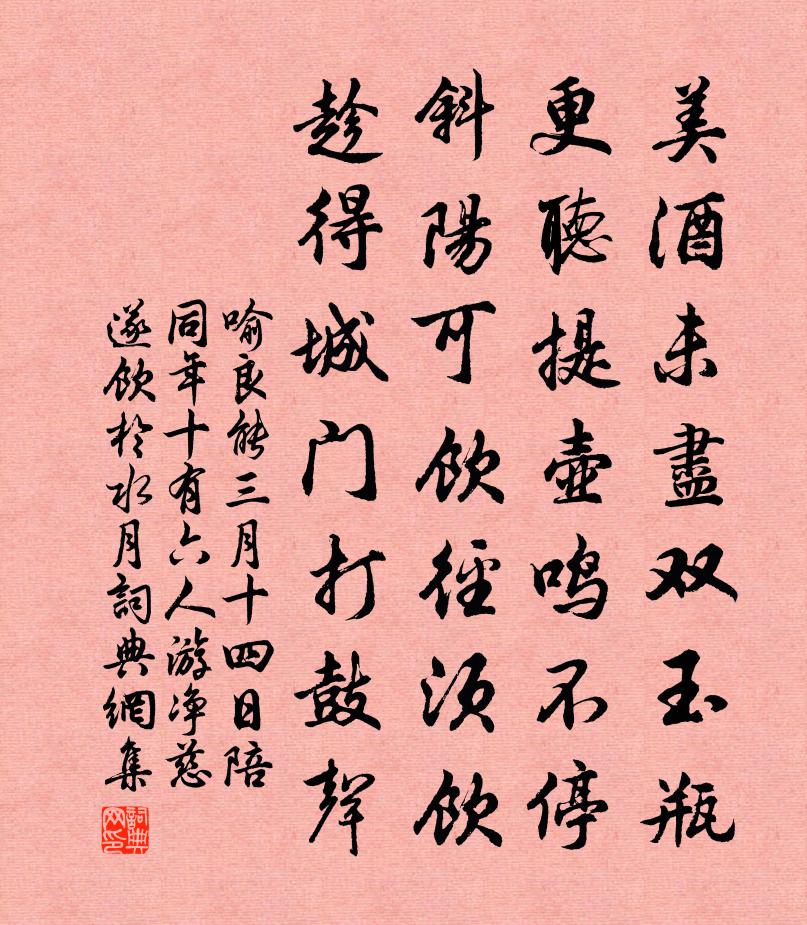 美酒未盡双玉瓶
更聴提壺鸣不停
斜陽可飲徑须飲
趁得城门打鼓聲
喻良能三月十四日陪
同年十有六人游净慈
遂飲於水月詞典網集
詞典网印